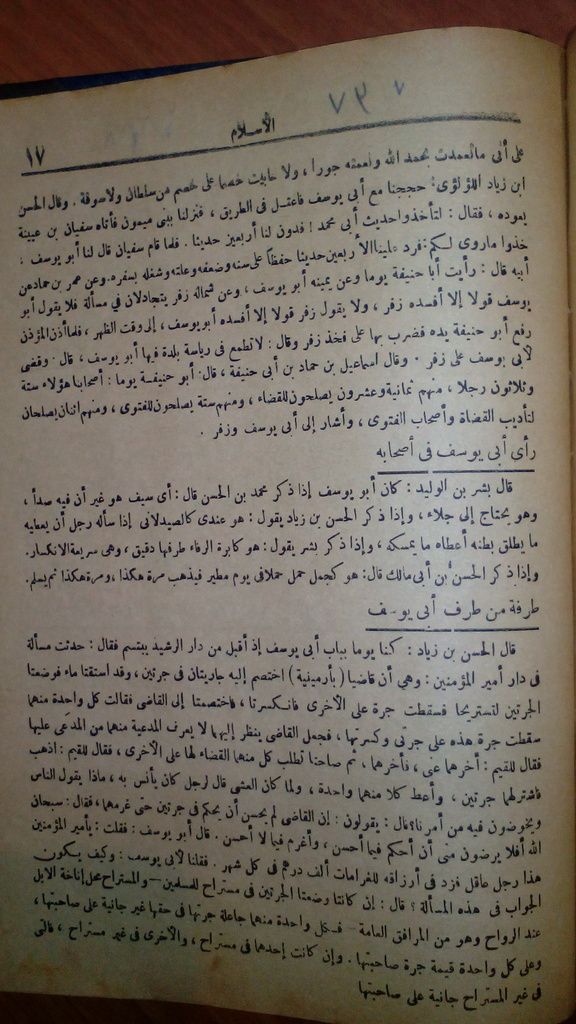 ٧٣٧
الأسلام
١٧
على أنى ماتعمدت بحمد الله ونعمته جورا ، ولا حابيت خصما على خصم من سلطان ولاسوقة . وقال الحسن
ابن زياد اللؤلؤى : حججنا مع أبى يوسف فاعتل فى الطريق ، فنزلنا ببئر ميمون فأتاه سفيان بن عيينة
يعوده ، فقال : لنا خذوا حديث أبى محمد ! فدون لنا أربعين حديثا . فلما قام سفيان قال لنا أبو يوسف :
خذوا ماروى لكم : فرد علينا الأربعين حديثا حفظا على سنه وضعفه وعلته وشغله بسفره . وعن عمر بن حماد عن
أبيه قال : رأيت أبا حنيفة يوما وعن يمينه أبو يوسف ، وعن شماله زفر يتجادلان فى مسألة فلا يقول أبو
يوسف قولا إلا أفسده زفر ، ولا يقول زفر قولا إلا أفسده أبو يوسف ، إلى وقت الظهر ، فلما أذن المؤذن
رفع أبو حنيفة يده فضرب بها على فخذ زفر وقال : لا تطمع فى رياسة بلدة فيها أبو يوسف ، قال : وقضى
لأبى يوسف على زفر . وقال اسماعيل بن حماد بن أبى حنيفة ، قال : أبو حنيفة يوما : أصحابنا هؤلاء ستة
وثلاثون رجلا ، منهم ثمانية وعشرون يصلحون للقضاء ، ومنهم ستة يصلحون للفتوى ، ومنهم اثنان يصلحان
لتأديب القضاة وأصحاب الفتوى ، وأشار إلى أبى يوسف وزفر .
رأى أبى يوسف فى أصحابه
قال بشر بن الوليد : كان أبو يوسف إذا ذكر محمد بن الحسن قال : أى سيف هو غير أن فيه صدأ ،
وهو يحتاج إلى جلاء ، وإذا ذكر الحسن بن زياد يقول : هو عندى كالصيدلانى إذا سأله رجل أن يعطيه
ما يطلق بطنه أعطاه ما يمسكه ، وإذا ذكر بشر يقول : هو كابرة الرفاء طرفها دقيق ، وهى سريعة الانكسار.
وإذا ذكر الحسن بن أبى مالك قال : هو كجمل حمل حملا فى يوم مطير فيذهب مرة هكذا ، ومرة هكذا ثم يسلم.
طرفة من طرف أبى يوسف
قال الحسن بن زياد : كنا يوما بباب أبى يوسف إذ أقبل من دار الرشيد يبتسم فقال : حدثت مسألة
فى دار أمير المؤمنين : وهى أن قاضيا ( بأرمينية ) اختصم إليه جاريتان فى جرتين ، وقد استقتا ماء فوضعتا
الجرتين لتستريحا فسقطت جرة على الأخرى فانكسرتا ، فاختصمتا إلى القاضى فقالت كل واحدة منهما
سقطت جرة هذه على جرتى وكسرتها ، فجعل القاضى ينظر إليهما لا يعرف المدعية منهما من المدعى عليها
فقال للقيم : أخرهما عنى ، فأخرهما ، ثم صاحتا تطلب كل منهما القضاء لها على الأخرى ، فقال للقيم : اذهب
فاشتر لهما جرتين ، وأعط كلا منهما واحدة ، ولما كان العشى قال لرجل كان يأنس به ، ماذا يقول الناس
ويخوضون فيه من أمرنا ؟ قال : يقولون : إن القاضى لم يحسن أن يحكم فى جرتين حتى غرمهما ، فقال : سبحان
الله أفلا يرضون منى أن أحكم فيما أحسن ، وأغرم فيما لا أحسن . قال أبو يوسف : فقلت : يأمير المؤمنين
هذا رجل عاقل فزد فى أرزاقه للغرامات ألف درهم فى كل شهر . فقلنا لأبى يوسف : وكيف يكون
الجواب فى هذه المسألة ؟ قال : إن كانتا وضعتا الجرتين فى مستراح للمسلمين – والمستراح محل إناخة الابل
عند الرواح وهو من المرافق العامة – فكل واحدة منهما جاعلة جرتها فى حقها غير جانية على صاحبتها ،
وعلى كل واحدة قيمة جرة صاحبتها . وإن كانت إحدهما فى مستراح ، والأخرى فى غير مستراح ، فالتى
فى غير المستراح جانية على صاحبتها